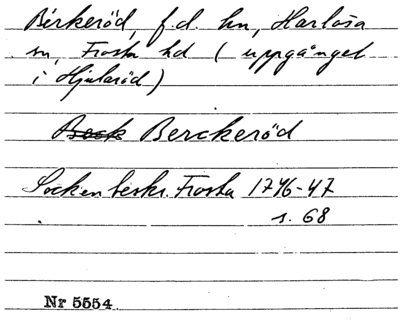 Birkeröd, f.d. hn, Harlösa
sn, Frosta hd (uppgånget
i Hjularöd)
Berckeröd
Sockenbeskr. Frosta 1746-47
s. 68
Nr 5554